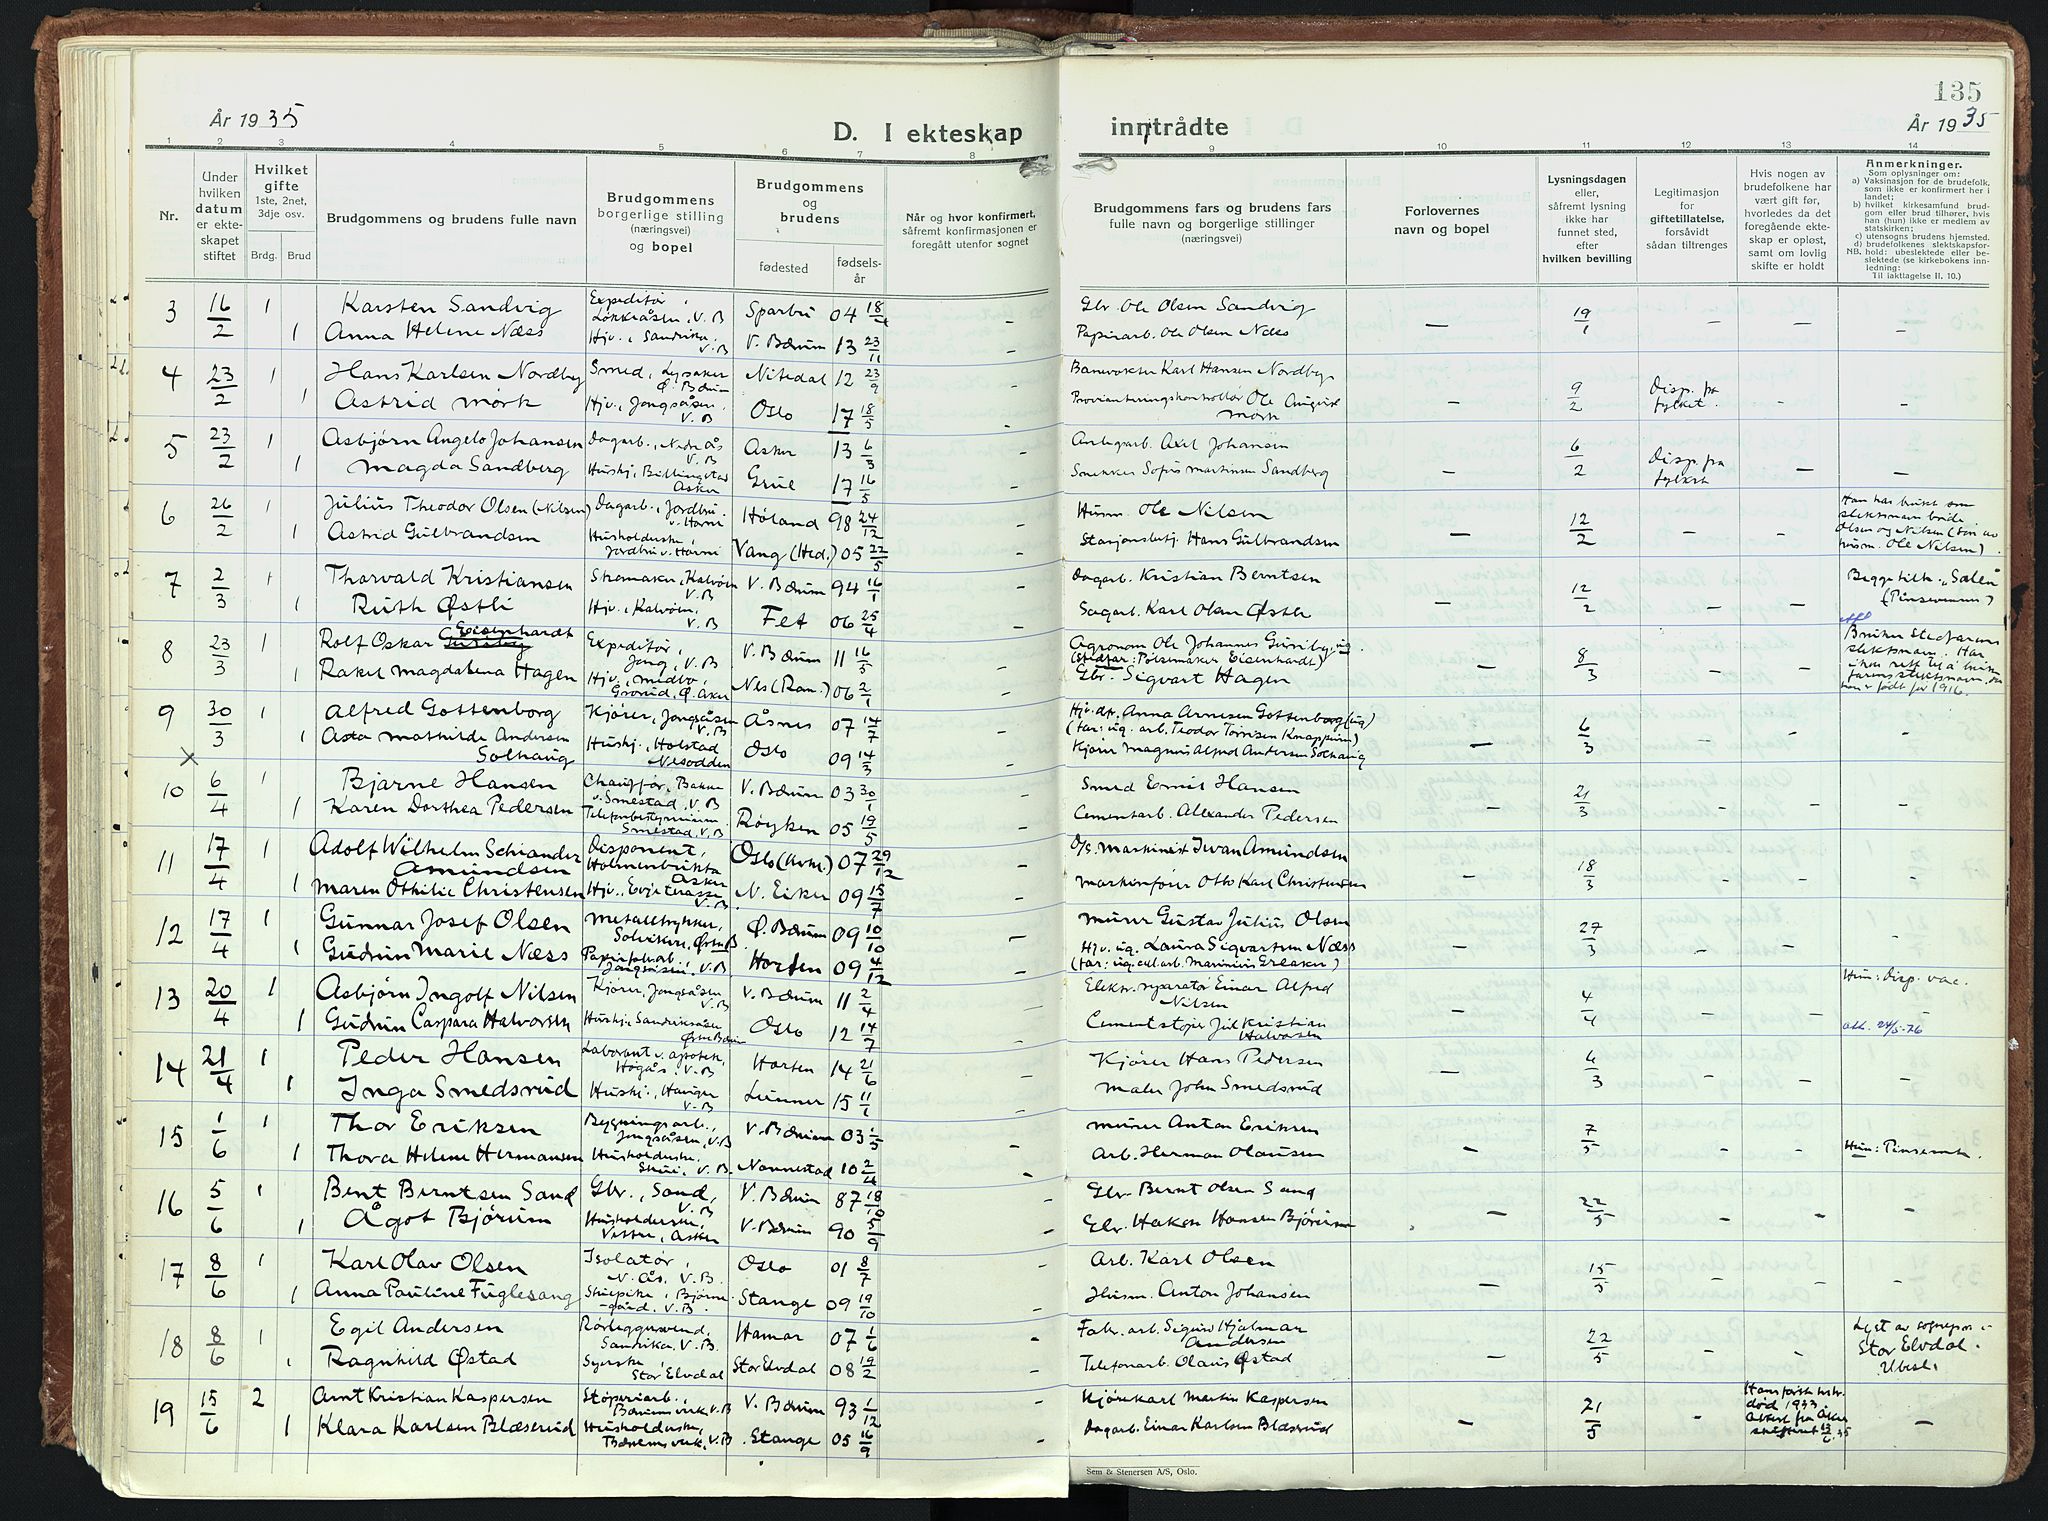 135
År 1935
D. I ekteskap
inntrådte
År 1935
1 2 3 4 5 6 7 8 9 10 11 12 13 14
Nr.
Under hvilken datum er ekteskapet stiftet
Hvilket gifte 1ste, 2net, 3dje osv.
Brdg. Brud
Brudgommens og brudens fulle navn
Brudgommens borgerlige stilling (næringsvei) og bopel
Brudgommens og brudens
fødested
fødselsår
Når og hvor konfirmert, såfremt konfirmasjonen er foregått utenfor sognet
Brudgommens fars og brudens fars fulle navn og borgerlige stillinger (næringsvei)
Forlovernes navn og bopel
Lysningsdagen eller, såfremt lysning ikke har funnet sted, efter hvilken bevilling
Legitimasjon for giftetillatelse, forsåvidt sådan tiltrenges
Hvis nogen av brudefolkene har vært gift før, hvorledes da det foregående ekteskap er opløst, samt om lovlig skifte er holdt
Anmerkninger.
Som oplysninger om:
a) Vaksinasjon for de brudefolk, som ikke er konfirmert her i landet;
b) hvilket kirkesamfund brudgom eller brud tilhører, hvis han (hun) ikke er medlem av statskirken;
c) utensogns brudens hjemsted.
d) brudefolkenes slektskapsforhold: ubeslektede eller beslektede (se kirkebokens innledning:
NB. Til iakttagelse II. 10.)
3 16/2 1 Karsten Sandvig Expeditør, Løkkeåsen, V. B Sparbu 04 18/4 Gbr. Ole Olsen Sandvig 19/1 – –
1 Anna Helene Næss Hjv., Sandvika, V. B V. Bærum 13 23/11 – Papirarb. Ole Olsen Næss –
4 23/2 1 Hans Karlsen Nordby Smed, Lysaker Ø. Bærum Nitedal 12 23/9 – Banevokter Karl Hansen Nordby 9/2 Disp. fra fylket.
1 Astrid Mørk Hjv., Jongsåsen, V. B Oslo 17 18/5 – Ole Mørk – –
5 23/2 1 Asbjørn Angelo Johansen Dagarb., Nedre Ås V. B Asker 13 6/3 – Anlegarb. Axel Johansen 6/2 Disp. fra fylket
1 Magda Sandberg Hushj., Billingstad Asker Grue 17 16/5 – Snekker Sofus Martinsen Sandberg – –
6 26/2 1 Julius Theodor Olsen (Nilsen) Dagarb., Jordbru Høland 98 24/12 – Husm. Ole Nilsen 12/2 – – Han har brukt som slektsnavn både Olsen og Nilsen (sønn av husm. Ole Nilsen).
1 Astrid Gulbrandsen Husholderske, Jordbru Vang (Hed.) 05 22/5 – Stasjonsbetj. Hans Gulbrandsen –
7 2/3 1 Thorvald Kristiansen V. B V. Bærum 94 16/1 – Dagarb. Kristian Berntsen 12/2 – – Begge tilh. "Salen" (Pinsevenn)
1 Ruth Østli Hjv., Kalvøen, V. B Fet 06 25/4 – Sagarb. Karl Olsen Østli –
8 23/3 1 Rolf Oskar Eisenhardt Expeditør, Jong, V. B V. Bærum 11 16/5 – Agronom Ole Johannes (Stedfar: Pølsemaker Eisenhardt) 8/3 – – Bruker stedfarens slektsnavn. Har farens slektsnavn, da han er født før 1916.
1 Rakel Magdalena Hagen Hjv., Grorud, Ø. Aker Nes (Rom.) 06 2/1 – Gbr. Sigvart Hagen –
9 30/3 1 Alfred Gottenborg Kjører, Jongsåsen V. B Åsnes 07 14/7 – Anna Arnesen Gottenborg (ug) (far: ug. arb. Teodor) 6/3 – – –
1 Asta Mathilde Andersen Solhaug Hushj., Nesodden Oslo 09 14/3 – Kjører Magnus Alfred Andersen Solhaug –
×
10 6/4 1 Bjarne Hansen Chauffør, Bakke v. Smestad, V. B V. Bærum 03 30/1 – Smed Emil Hansen 21/3 – – –
1 Karen Dorthea Pedersen Telefonbestyrerinne, Smestad, V. B Røyken 05 19/5 – Cementarb. Alexander Pedersen –
11 17/4 1 Adolf Wilhelm Schiander Amundsen Disponent, Asker Oslo 07 29/12 – Maskinist Iwan Amundsen 18/3 – – –
1 Maren Othilie Christensen Hjv., Evje terasse V. B N. Eiker 09 15/7 – Maskinfører Otto Karl Christensen –
12 17/4 1 Gunnar Josef Olsen Metalltrykker, Ø. Bærum 09 10/10 – Murer Gustav Julius Olsen 27/3 – – –
1 Gudrun Marie Næss Papirfabarb., V. B Horten 09 4/12 – Hjv. ug. Laura Sigvartsen Næss –
13 20/4 1 Asbjørn Ingolf Nilsen Kjører, Jongsåsen V. B V. Bærum 11 2/4 – Elektr. reparatør Einar Alfred Nilsen 4/4 – – Hun: disp. vac.
1 Gudrun Caspara Halvorsen Hushj. Oslo 12 14/7 – Cementstøper Jul Kristian Halvorsen – att. 24/5-76
14 21/4 1 Peder Hansen Laborant v. apotek, Høgås, V. B Horten 14 21/6 – Kjører Hans Pedersen 4/3 – – –
1 Inga Smedsrud Hushj., Hauger V. B Lunner 15 11/1 – Maler John Smedsrud –
15 1/6 1 Thor Eriksen Bygningsarb., Jongsåsen, V. B V. Bærum 03 1/5 – Murer Anton Eriksen 7/5 – – Hun: Pinsevenn.
1 Thora Helene Hermansen Husholderske, Skui, V. B. Nannestad 10 2/4 – Arb. Herman Olausen –
16 5/6 1 Bent Berntsen Sand Gbr., Sand, V. B V. Bærum 87 18/10 – Gbr. Bernt Olsen Sand 22/5 – – –
1 Ågot Bjørum Husholderske, Vettre, Asker V. Bærum 90 5/9 – Gbr. Haken Hansen Bjørum –
17 8/6 1 Karl Olav Olsen Isolatør, N. Ås, V. B. Oslo 01 8/7 – Arb. Karl Olsen 15/5 – – –
1 Anna Pauline Fuglesang V. B. Stange 09 19/10 Husm. Anton Johansen –
18 8/6 1 Egil Andersen Rørleggersvend, Sandvika, V. B. Hamar 07 1/6 – Fabr. arb. Sigurd Hjalmar Andersen 22/5 – – Lyst av sogneprest i Stor Elvdal. Ubesl.
1 Ragnhild Østad Syerske, Stor Elvdal Stor Elvdal 08 19/2 – Telefonarb. Olaus Østad
19 15/6 2 Arnt Kristian Kaspersen Støperiarb., Bærums verk, V. B V. Bærum 93 1/12 – Kjørekarl Martin Kaspersen 21/5 – Hans første hustr. død 1933 –
1 Klara Karlsen Blæserud Husholderske, Bærums verk, V. B Stange 05 16/9 – Dagarb. Einar Karlsen Blæserud –
Sem & Stenersen A/S, Oslo.